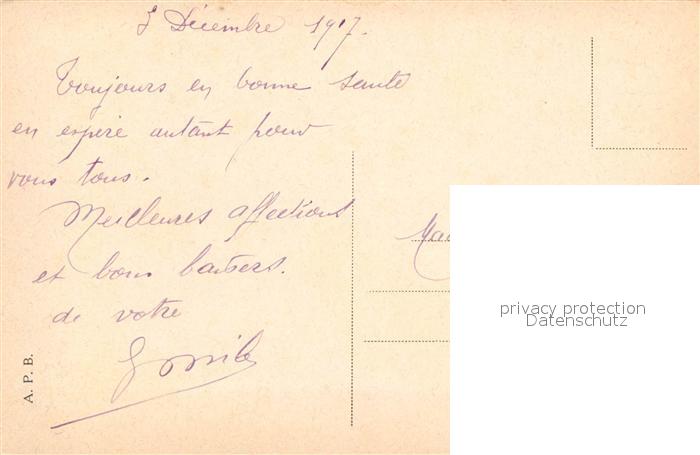 3 Décembre 1917.
Toujours en bonne santé
en espère autant pour
vous tous.
Meilleures affections
et bons baisers.
de votre
A. P. B.
Mad
privacy protection
Datenschutz